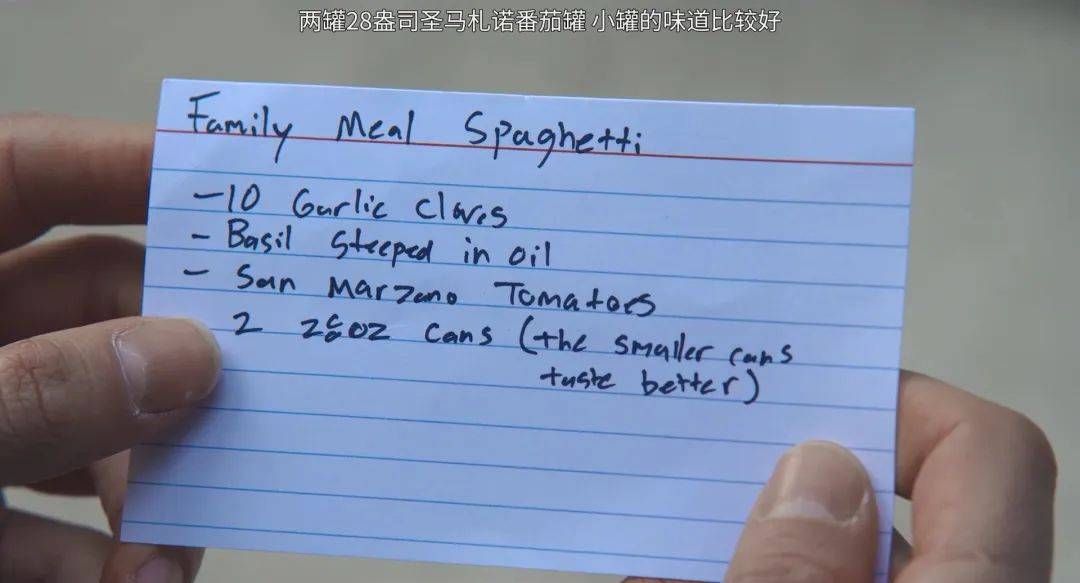 两罐28盎司圣马札诺番茄罐 小罐的味道比较好
Family Meal Spaghetti
- 10 Garlic Cloves
- Basil steeped in oil
- San Marzano Tomatoes
2 28oz cans (the smaller cans
taste better)